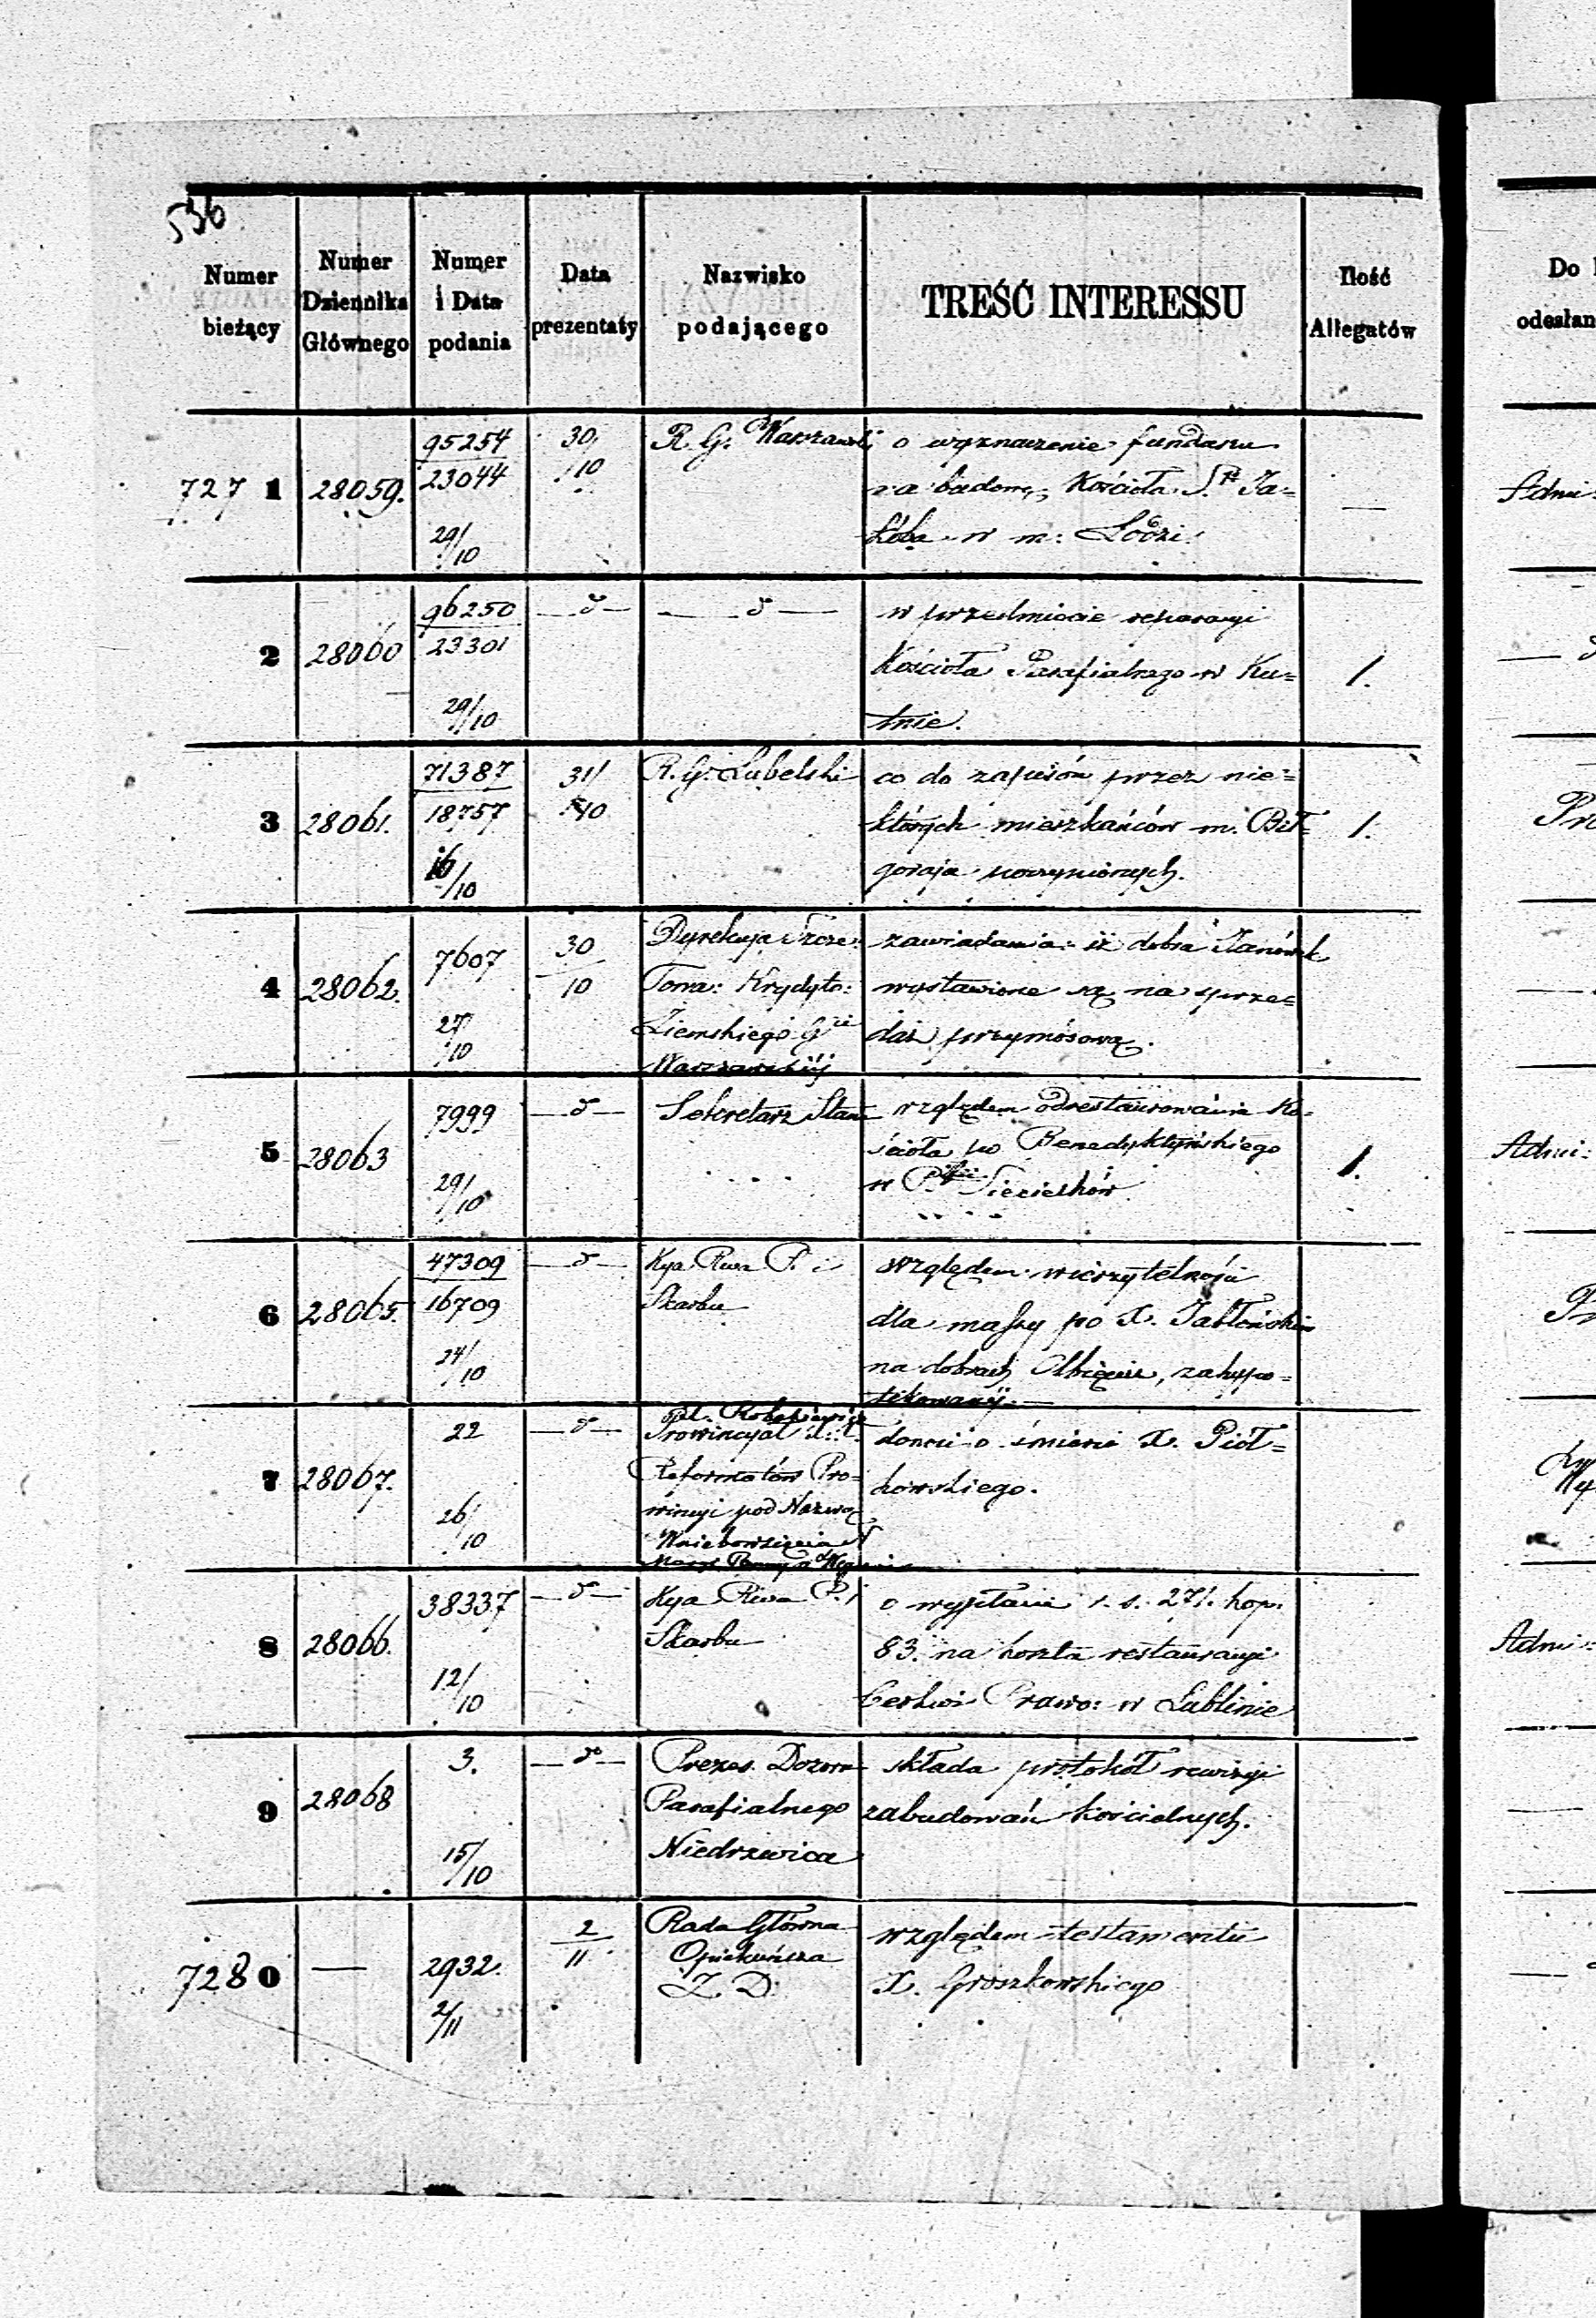 536
Numer bieżący
Numer Dziennika Głównego
Numer i Data podania
Data prezentaty
Nazwisko podającego
TREŚĆ INTERESSU
Ilość Allegatów
Do
odesłan
7271
28059.
95254
23044
29/10
30/10
R. G. Warszawski
o wyznaczenie funduszu
na budowę Kościoła Ś. Ja=
kóba w m: Łodzi.
—
Admi:
2
28060
96250
23301
29/10
— d —
— d —
w przedmiocie reparacyi
Kościoła Parafialnego w Ku=
tnie.
1.
3
28061.
71387
18757
16/10
31/10
R. G. Lubelski
co do zapisów przez nie=
których mieszkańców m. Bił=
goraja poczynionych.
1.
4
28062.
7607
27/10
30
10
Dyrekcya Szcze:
Towa: Kredyto:
Ziemskiego G
Warszawskiej
zawiadamia iż dobra Janówek
wystawione są na sprze=
daż przymusową.
5
28063
7999
29/10
— d —
Sekretarz Stanu
względem odrestaurowania Ko=
ścioła po Benedyktyńskiego
w Sieciechów
1.
Admi:
6
28065.
47309
16709
24/10
— d —
Kya Rwa P. i
Skarbu
względem wierzytelności
dla massy po X. Jabłońskim
na dobrach zahypo=
tekowanej.
7
28067.
22
26/10
— d —
Prowincyał
Reformatów Pro=
wincyi pod Nazwą
Wniebowzięcia N
donosi o śmierci X. Piót=
kowskiego.
8
28066.
38337
12/10
— d —
Kya Rwa P. i
Skarbu
o wypłacie r. s. 271. kop.
83. na koszta restauracyi
Cerkwi Prawo: w Lublinie
Admi:
9
28068
3.
15/10
— d —
Prezes Dozoru
Parafialnego
Niedrzwica
składa protokół rewizyi
zabudowań kościelnych.
7280
—
2932.
2/11
2
11
Rada Główna
Opiekuńcza
Z. D.
względem testamentu
X. Groszkowskiego